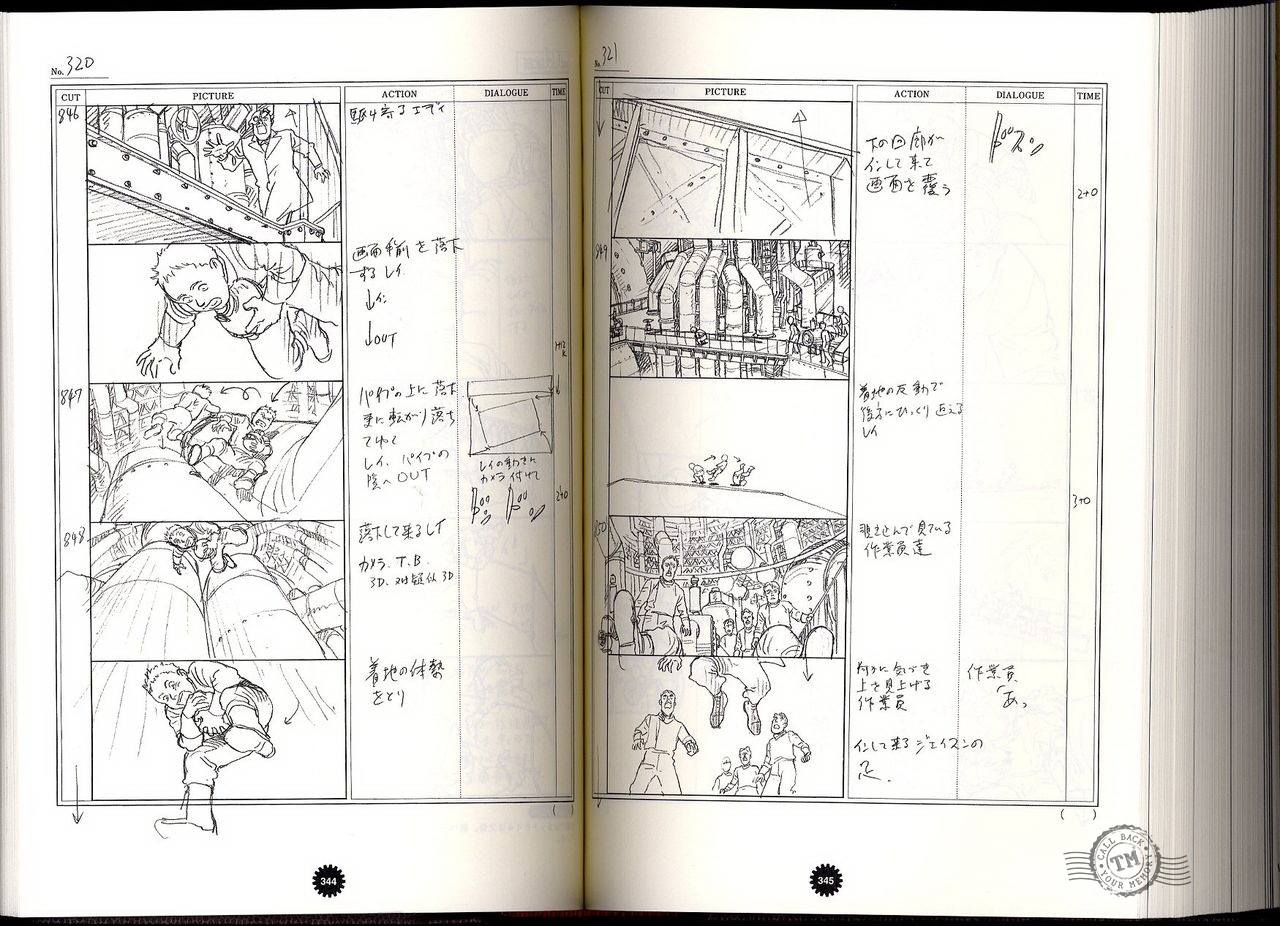 No. 320
CUT PICTURE ACTION DIALOGUE TIME
846
駆け寄るエディ
画面手前を落下
するレイ
↓イン
↓OUT
1+12
K
847
パイプの上に落下
更に転がり落ち
てゆく
レイ、パイプの
陰へOUT
レイの動きに
カメラ付けて
2+0
848
落下して来るレイ
カメラ. T.B.
3D. 対疑似3D
着地の体勢
をとり
( )
344
No. 321
CUT PICTURE ACTION DIALOGUE TIME
下の回廊が
インして来て
画面を覆う
ドズン
2+0
849
着地の反動で
後方にひっくり返る
レイ
3+0
850
見ている
作業員達
気づき
上を見上げる
作業員
作業員
「あっ
インして来るジェイスンの
足.
( )
345
CALL BACK
TM
YOUR MEMORY